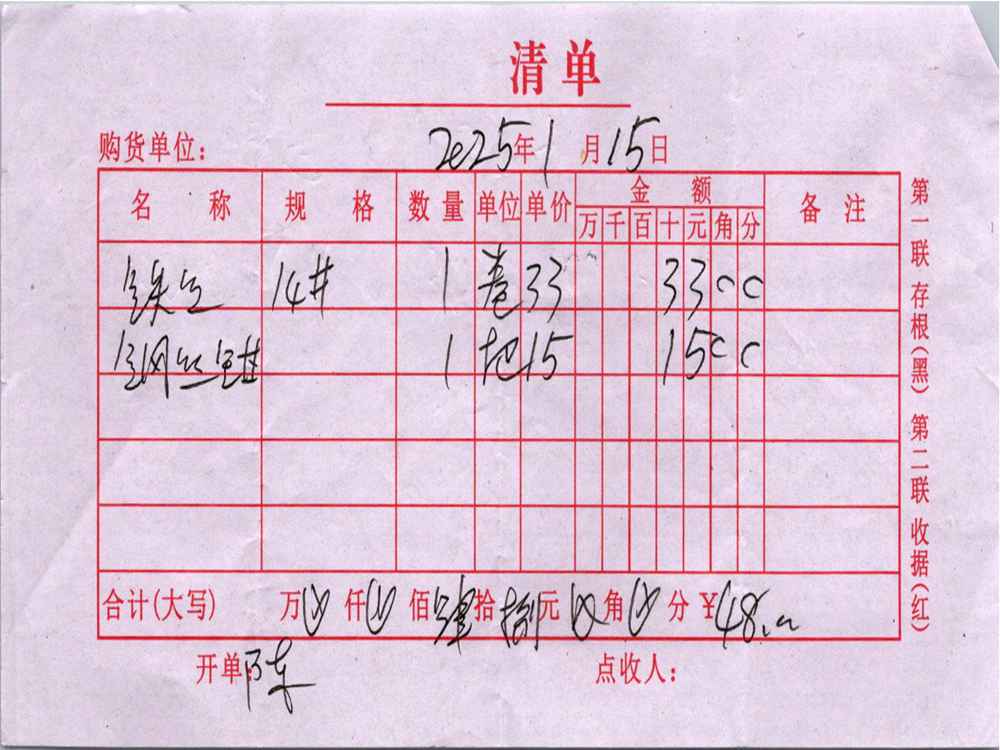 清单
购货单位： 2025年1月15日
名 称 规 格 数量 单位 单价 金 额 备 注
万 千 百 十 元 角 分
铁丝 14# 1 卷 33 33 0 0
钢丝钳 1 把 15 15 0 0
合计(大写) 万 仟 佰 肆拾 捌元 角 分 ¥48.00
开单：陈 点收人：
第一联 存根(黑) 第二联 收据(红)